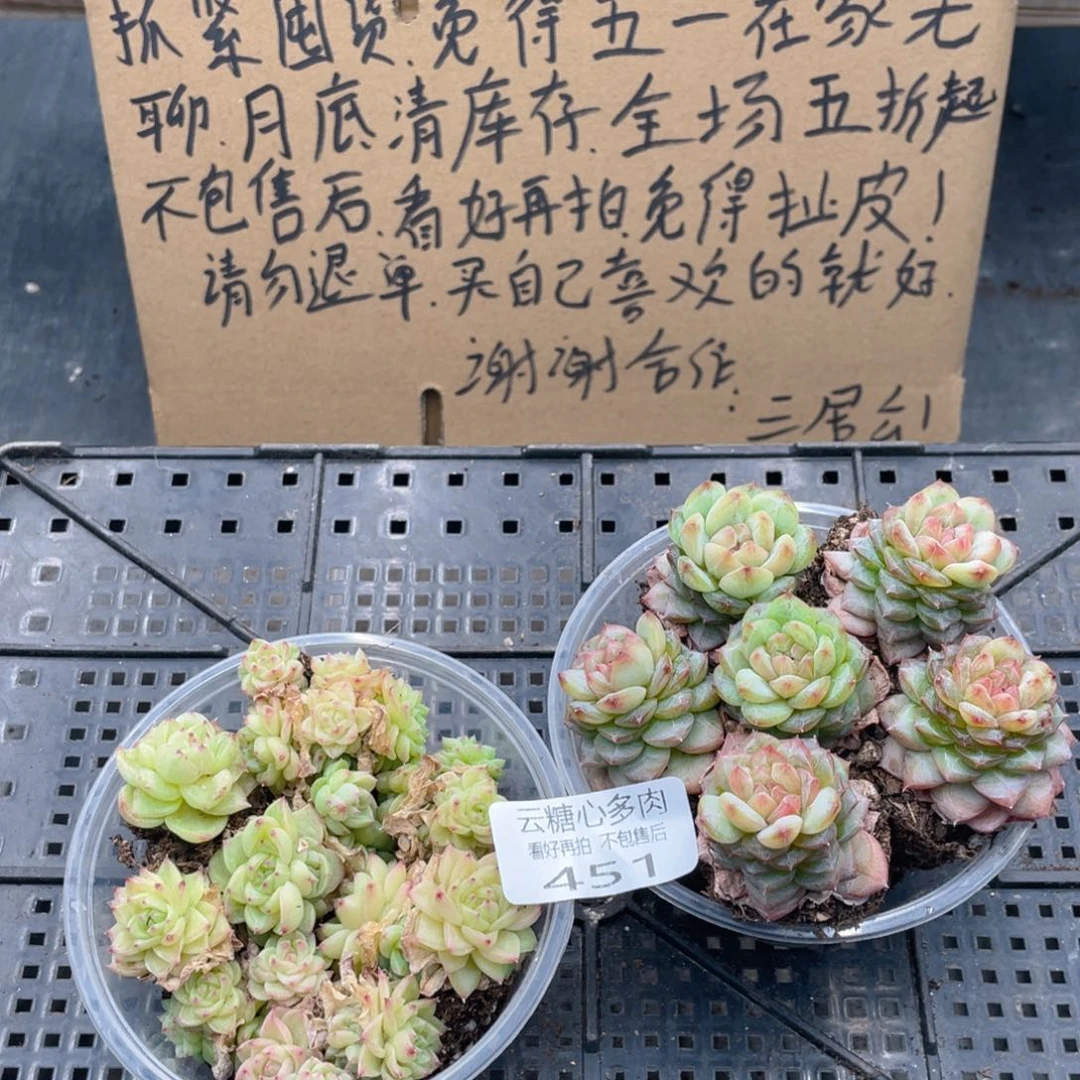 抓紧囤货.免得五一在家无
聊.月底.清库存.全场五折起
不包售后.看好再拍.免得扯皮!
请勿退单.买自己喜欢的就好.
谢谢合作.
云糖心多肉
看好再拍 不包售后
451